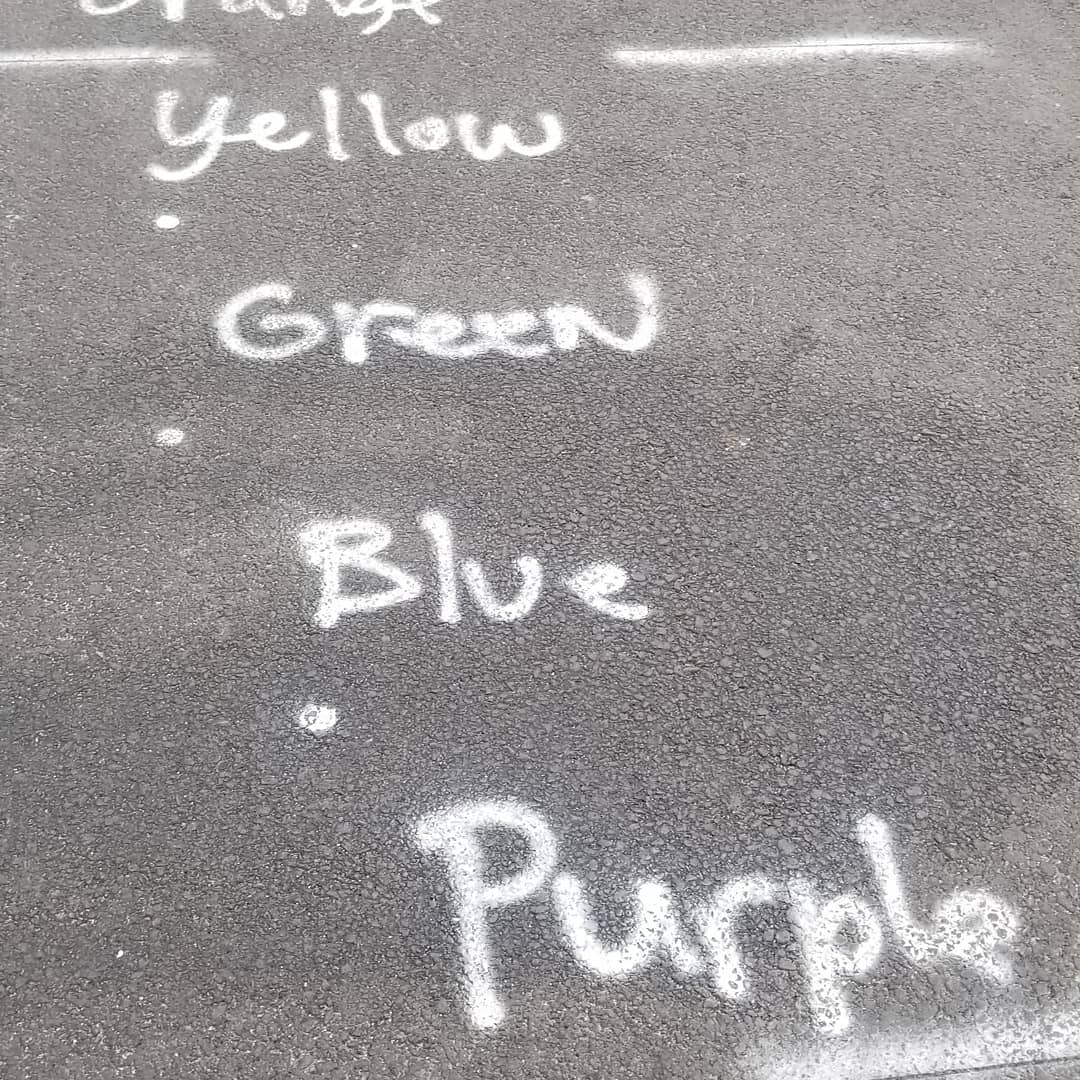 Orange
yellow
Green
Blue
Purple